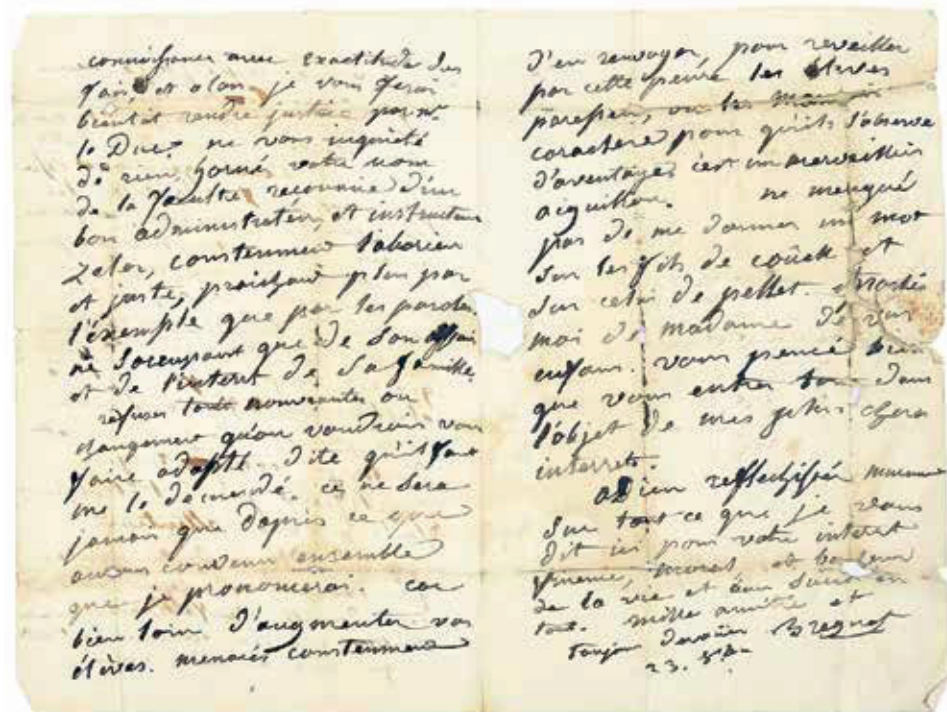 connoisance avec exactitude des
fais et alors je vous ferai
bientot rendre justice par mr
le Duc. ne vous inquieté
de rien, borné votre nom
de la faculté reconnue d'un
bon administrateur, et instructeur
zelee, constenment laborieu
et juste, praichant plus par
l'exemple que par les parolles.
ne s'occupant que de son affair
et de l'interet de sa famille.
refuser toute nouveautes ou
changement qu'on voudrois vous
faire adopté. dite qu'il faut
me le demandé. ce ne sera
jamais que dapres ce que
aurons convenu ensemble
que je prononcerai. car
bien loin d'augmenter vos
élèves. menacés constenment
d'en renvoyer, pour reveiller
par cette peure les éleves
paresseu, ou les mauvais
caractere pour qu'ils s'observe
d'aventage; c'est un merveilleux
aiguillon. ne menqué
pas de me donner un mot
sur les fils de couëk et
sur celui de pellet.
moi de madame de vos
enfans. vous pencé bien
que vous entrer tous dans
l'objet de mes plus chers
interrets.
adieu reflechissén
sur tout ce que je vous
dit ici pour votre interet
moral et bonheur
de la vie et
tout. mille amitié et
toujour Breguet
23.